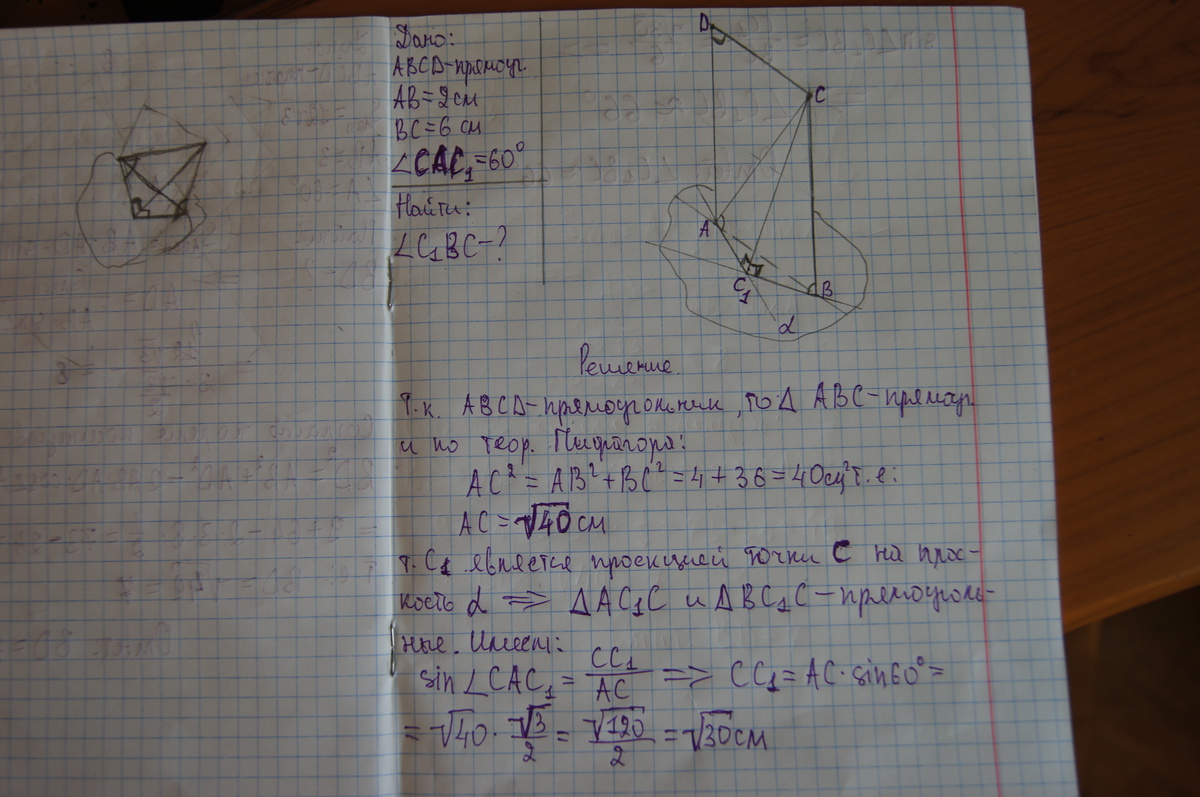 Дано:
ABCD-прямоуг.
AB=2см
BC=6 см
∠CAC₁=60°
Найти:
∠C₁BC-?
D
C
A
C₁
B
α
Решение.
Т.к. ABCD-прямоугольник, то Δ ABC-прямоуг.
и по теор. Пифагора:
AC² = AB²+BC² = 4+36 = 40см² т.е:
AC = √40 см
т. C₁ является проекцией точки C на плос-
кость α ⇒ ΔAC₁C и ΔBC₁C-прямоуголь-
ные. Имеем:
sin∠CAC₁ = CC₁/AC ⇒ CC₁ = AC·sin60° =
= √40 · √3/2 = √120/2 = √30 см